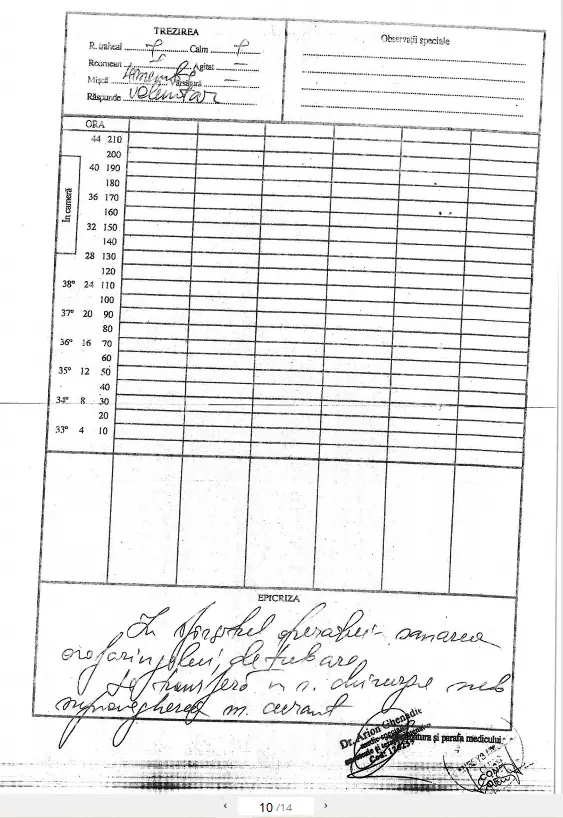 TREZIREA
R. traheal + Calm +
Rcornean + Agitat —
Mișcă Vărsătură —
Răspunde voluntar
Observații speciale
ORA
44 210
200
40 190
180
36 170
160
În cameră
32 150
140
28 130
120
38° 24 110
100
37° 20 90
80
36° 16 70
60
35° 12 50
40
34° 8 30
20
33° 4 10
EPICRIZA
În sfîrșitul operației - sanarea
orofaringelui, detubare
Se transferă în s. chirurgie sub
supravegherea m. curant
Dr. Arion Ghenadie
Semnătura și parafa medicului
10 /14